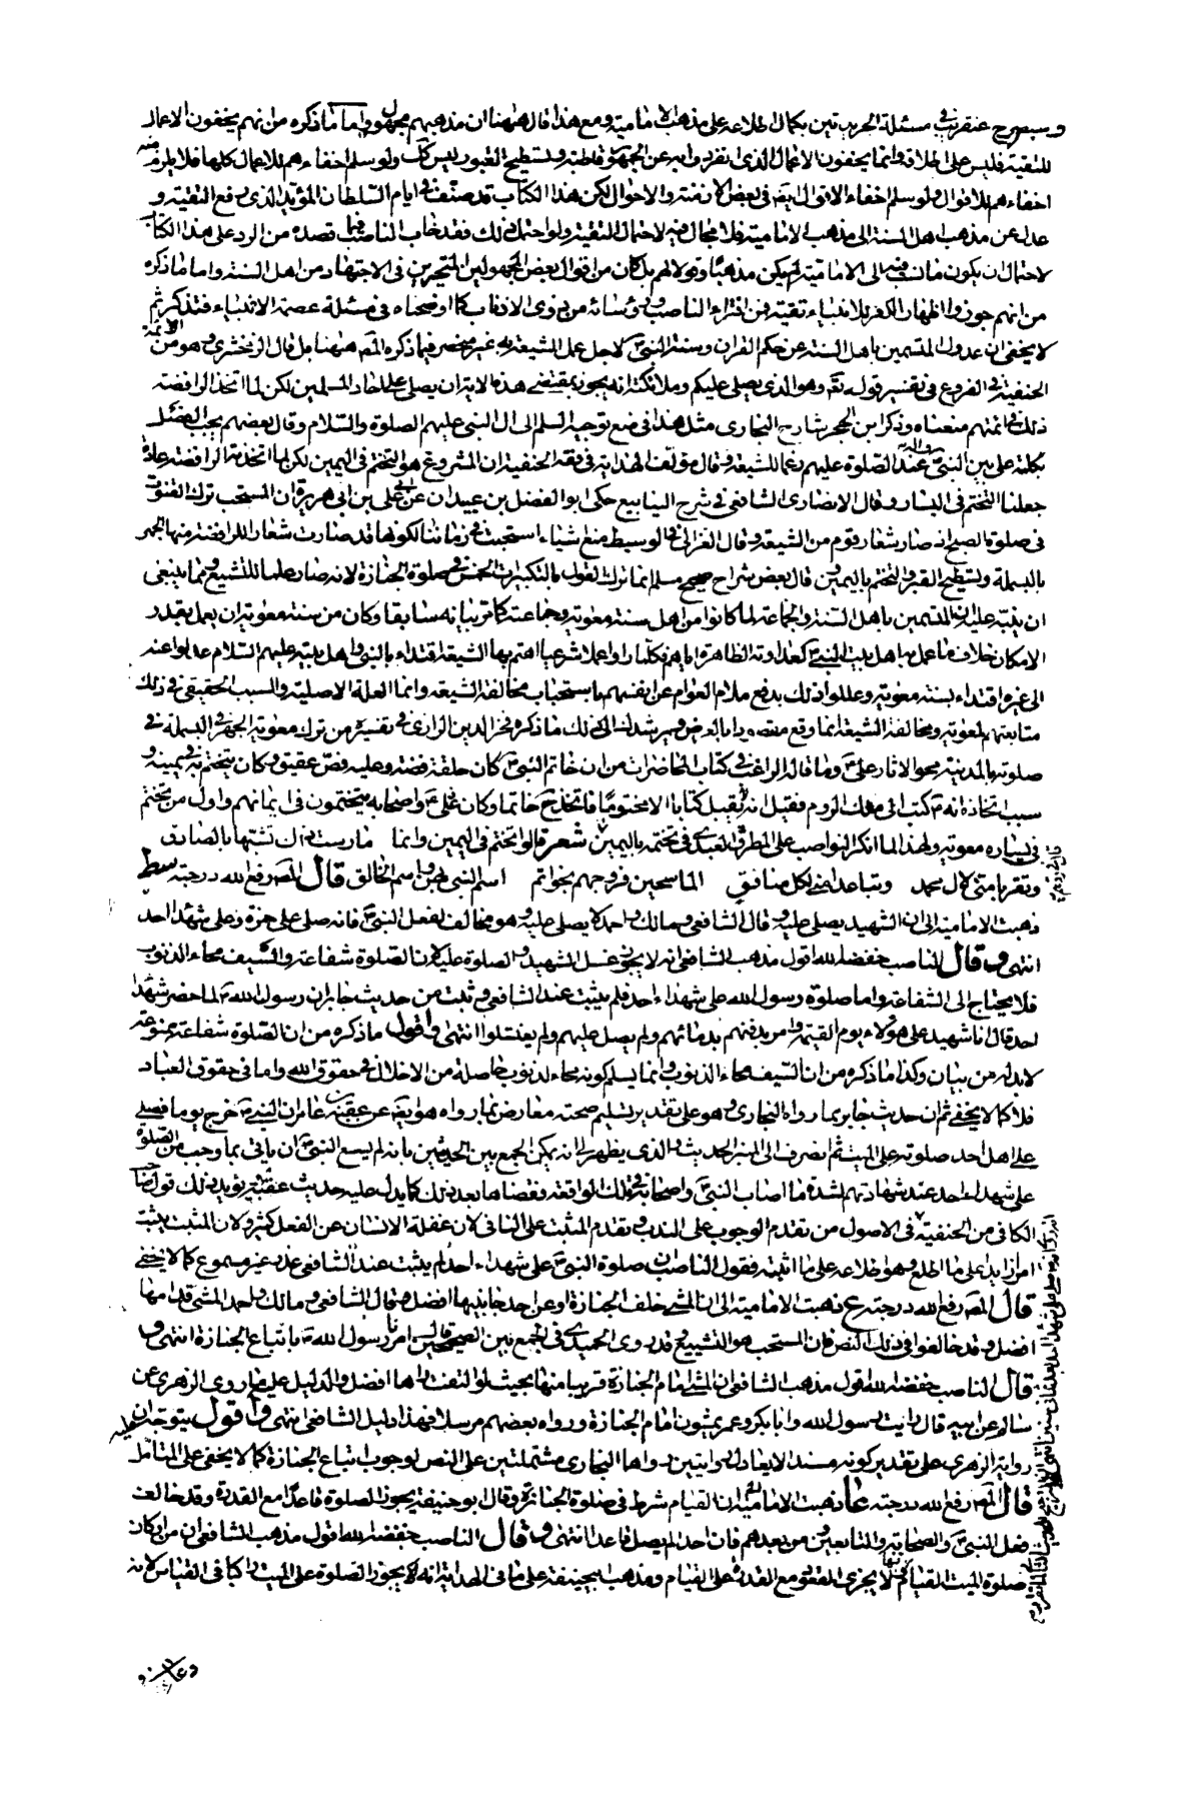 وسيصرح عنقريب في مسئلة الجريدتين بكمال اطلاعه على مذهب الامامية ومع هذا قال ههنا ان مذهبهم مجهول واما ما ذكره من انهم يخفون الاعمال
للتقية فليس على اطلاقه وانما يخفون الاعمال الذى انفردوا به عن الجمهور قاطبة وتسطيح القبور ليس كك ولو سلم اخفاءهم للاعمال كلها فلا يلزم منه
اخفاءهم للاقوال ولو سلم اخفاء الاقوال ايضا فى بعض الازمنة والاحوال لكن هذا الكتاب قد صنف فى ايام السلطان المؤيد الذى رفع التقية و
عدل عن مذهب اهل السنة الى مذهب الامامية فلا مجال فيه لاحتمال التقية ولو احتمل ذلك فقد خاب الناصب فيما قصده من الرد على هذا الكتاب
لاحتمال ان يكون ما نسب فيه الى الامامية لم يكن مذهبا وقولا لهم بل كان من اقوال بعض المجهولين المتحيرين فى الاجتهاد من اهل السنة واما ما ذكره
من انهم جوزوا اظهار الكفر للانبياء تقية فمن افتراء الناصب ورؤسائه من ذوى الاذناب كما اوضحناه فى مسئلة عصمة الانبياء فتذكر ثم
لا يخفى ان عدول المتسمين باهل السنة عن حكم القران وسنة النبى لاجل عمل الشيعة به غير منحصر فيما ذكره المص ههنا بل قال الزمخشرى وهو من الائمة
الحنفية فى الفروع فى تفسير قوله تعه وهو الذى يصلى عليكم وملائكته انه يجوز بمقتضى هذه الاية ان يصلى على احاد المسلمين لكن لما اتخذ الرافضة
ذلك فى ائمتهم منعناه وذكر ابن الحجر شارح البخارى مثل هذا فى منع توجيه السلم الى ال النبى عليهم الصلوة والسلام وقال بعضهم يجب الفصل
بكلمة على بين النبى واله عند الصلوة عليهم رغما للشيعة وقال مؤلف الهداية فى فقه الحنفية ان المشروع هو التختم فى اليمين لكن لما اتخذته الرافضة عادة
جعلنا التختم فى اليسار وقال الانصارى الشافعى فى شرح الينابيع حكى ابو الفضل بن عبدان عن ابى على بن ابى هريرة ان المستحب ترك القنوت
فى صلوة الصبح اذ صار شعار قوم من الشيعة وقال الغزالى فى الوسيط منع اشياء استحبت فى زماننا لكونها قد صارت شعارا للرافضة منها الجهر
بالبسملة وتسطيح القبر والتختم باليمين وقال بعض شراح صحيح مسلم انما ترك القول بالتكبيرات الخمس فى صلوة الجنازة لانه صار علما للتشيع ومما ينبغى
ان ينبه عليه ان المتسمين باهل السنة والجماعة لما كانوا من اهل سنة معوية وجماعته كما مر بيانه سابقا وكان من سنة معوية ان يعمل بقدر
الامكان خلاف ما عمل به اهل بيت النبى كعداوته الظاهرة اياهم فكلما راوا عملا شرعيا اهتم بها الشيعة اقتداء بالنبى واهل بيته عليهم السلام عدلوا عنه
الى غيره اقتداء بسنة معوية وعللوا ذلك بدفع ملام العوام عن انفسهم باستحباب مخالفة الشيعة وانما العلة الاصلية والسبب الحقيقى فى ذلك
متابعتهم لمعوية ومخالفة الشيعة انما وقع مقصودا بالعرض ويرشدك الى ذلك ما ذكره فخر الدين الرازى فى تفسيره من ترك معوية الجهر فى البسملة فى
صلوته بالمدينة محوا لاثار على وما قاله الراغب فى كتاب المحاضرات من ان خاتم النبى كان حلقة فضة وعليه فص عقيق وكان يتختم به فى يمينه و
سبب اتخاذه انه كتب الى ملك الروم فقيل انه لا يقبل كتابا الا مختوما فاتخذ خاتما وكان على واصحابه يتختمون فى ايمانهم واول من تختم
فى يساره معوية ولهذا لما انكر النواصب على المطرف العبدى فى تختمه باليمين شعر قالوا تختم فى اليمين وانما مارست ذاك تشبها بالصادق
وتقربا منى لال محمد وتباعدا منى لكل منافق الماسحين فروجهم بخواتم اسم النبى بهن واسم الخالق قال المص رفع الله درجته سط
ذهبت الامامية الى ان الشهيد يصلى عليه وقال الشافعى ومالك واحمد لا يصلى عليه وهو مخالف لفعل النبى فانه صلى على حمزة وعلى شهداء احد
انتهى وقال الناصب خفضه الله اقول مذهب الشافعى انه لا يجوز غسل الشهيد ولا الصلوة عليه لان الصلوة شفاعة والسيف محاء الذنوب
فلا يحتاج الى الشفاعة واما صلوة رسول الله على شهداء احد فلم يثبت عند الشافعى وثبت من حديث جابر ان رسول الله لما حضر شهداء
احد قال انا شهيد على هؤلاء يوم القيمة وامر بدفنهم بدمائهم ولم يصل عليهم ولم يغتسلوا انتهى واقول ما ذكره من ان الصلوة شفاعة ممنوعة
لا بد له من بيان وكذا ما ذكره من ان السيف محاء الذنوب وانما يسلم كونه محاء لذنوب حاصلة من الاخلال فى حقوق الله واما فى حقوق العباد
فلا كما لا يخفى ثم ان حديث جابر مما رواه البخارى وهو على تقدير تسليم صحته معارض بما رواه هو ايضا عن عقبة بن عامر ان النبى خرج يوما فصلى
على اهل احد صلوته على الميت ثم انصرف الى المنبر الحديث والذى يظهر لى انه يمكن الجمع بين الحديثين بانه لم يسع النبى ان ياتى بما وجب من الصلوة
على شهداء احد عند شهادتهم لشدة ما اصاب النبى واصحابه فى تلك الواقعة وقضاها بعد ذلك كما يدل عليه حديث عقبة ويؤيد ذلك قول صاحب
الكافى من الحنفية فى الاصول من تقدم الوجوب على الندب وتقدم المثبت على النافى لان غفلة الانسان عن الفعل كثير ولان المثبت يثبت
امرا زايدا على ما اطلع وهو اطلاعه على ما اثبته فقول الناصب ان صلوة النبى على شهداء احد لم يثبت عند الشافعى عذر غير مسموع كما لا يخفى
قال المص رفع الله درجته ع ذهبت الامامية الى ان المشى خلف الجنازة او عن احد جانبيها افضل وقال الشافعى ومالك واحمد المشى قدامها
افضل وقد خالفوا فى ذلك النص فان المستحب هو التشييع وقد روى الحميدى فى الجمع بين الصحيحين قال امرنا رسول الله باتباع الجنازة انتهى و
قال الناصب خفضه الله اقول مذهب الشافعى ان المشى امام الجنازة قريبا منها بحيث لو التفت راها افضل والدليل عليه ما روى الزهرى عن
سالم عن ابيه قال رايت رسول الله وابا بكر وعمر يمشون امام الجنازة ورواه بعضهم مرسلا فهذا دليل الشافعى انتهى واقول يتوجه عليه ان
رواية الزهرى على تقدير كونه مسندا لا يعادل روايتين رواهما البخارى مشتملتين على النص لوجوب اتباع الجنازة كما لا يخفى على المتامل
قال المص رفع الله درجته عا ذهبت الامامية الى ان القيام شرط فى صلوة الجنائز وقال ابو حنيفة يجوز الصلوة قاعدا مع القدرة وقد خالف
فعل النبى والصحابة والتابعين ومن بعدهم فان احدا لم يصل قاعدا انتهى وقال الناصب خفضه الله اقول مذهب الشافعى ان من اركان
صلوة الميت القيام لانها لا يجزى القعود مع القدرة على القيام ومذهب ابى حنيفة على ما فى الهداية انه لا يجوز الصلوة على الميت راكبا فى القياس لانه